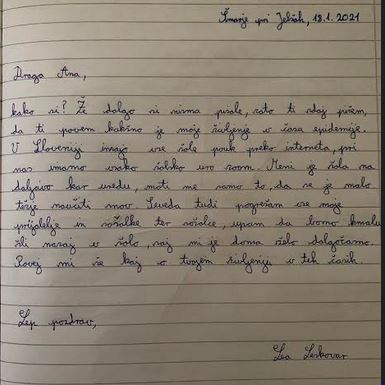 Šmarje pri Jelšah, 18.1.2021
Draga Ana,
kako si? Že dolgo si nisva pisale, zato ti zdaj pišem,
da ti povem kakšno je moje življenje v času epidemije.
V Sloveniji imajo vse šole pouk preko interneta, pri
nas imamo vsako šolsko uro zoom. Meni je šola na
daljavo kar vredu, moti me samo to, da se je malo
težje naučiti snov. Seveda tudi pogrešam vse moje
prijatelje in sošolke ter sošolce, upam da bomo kmalu
šli nazaj v šolo, saj mi je doma zelo dolgčasno.
Povej mi še kaj o tvojem življenju v teh časih.
Lep pozdrav,
Lea Leskovar